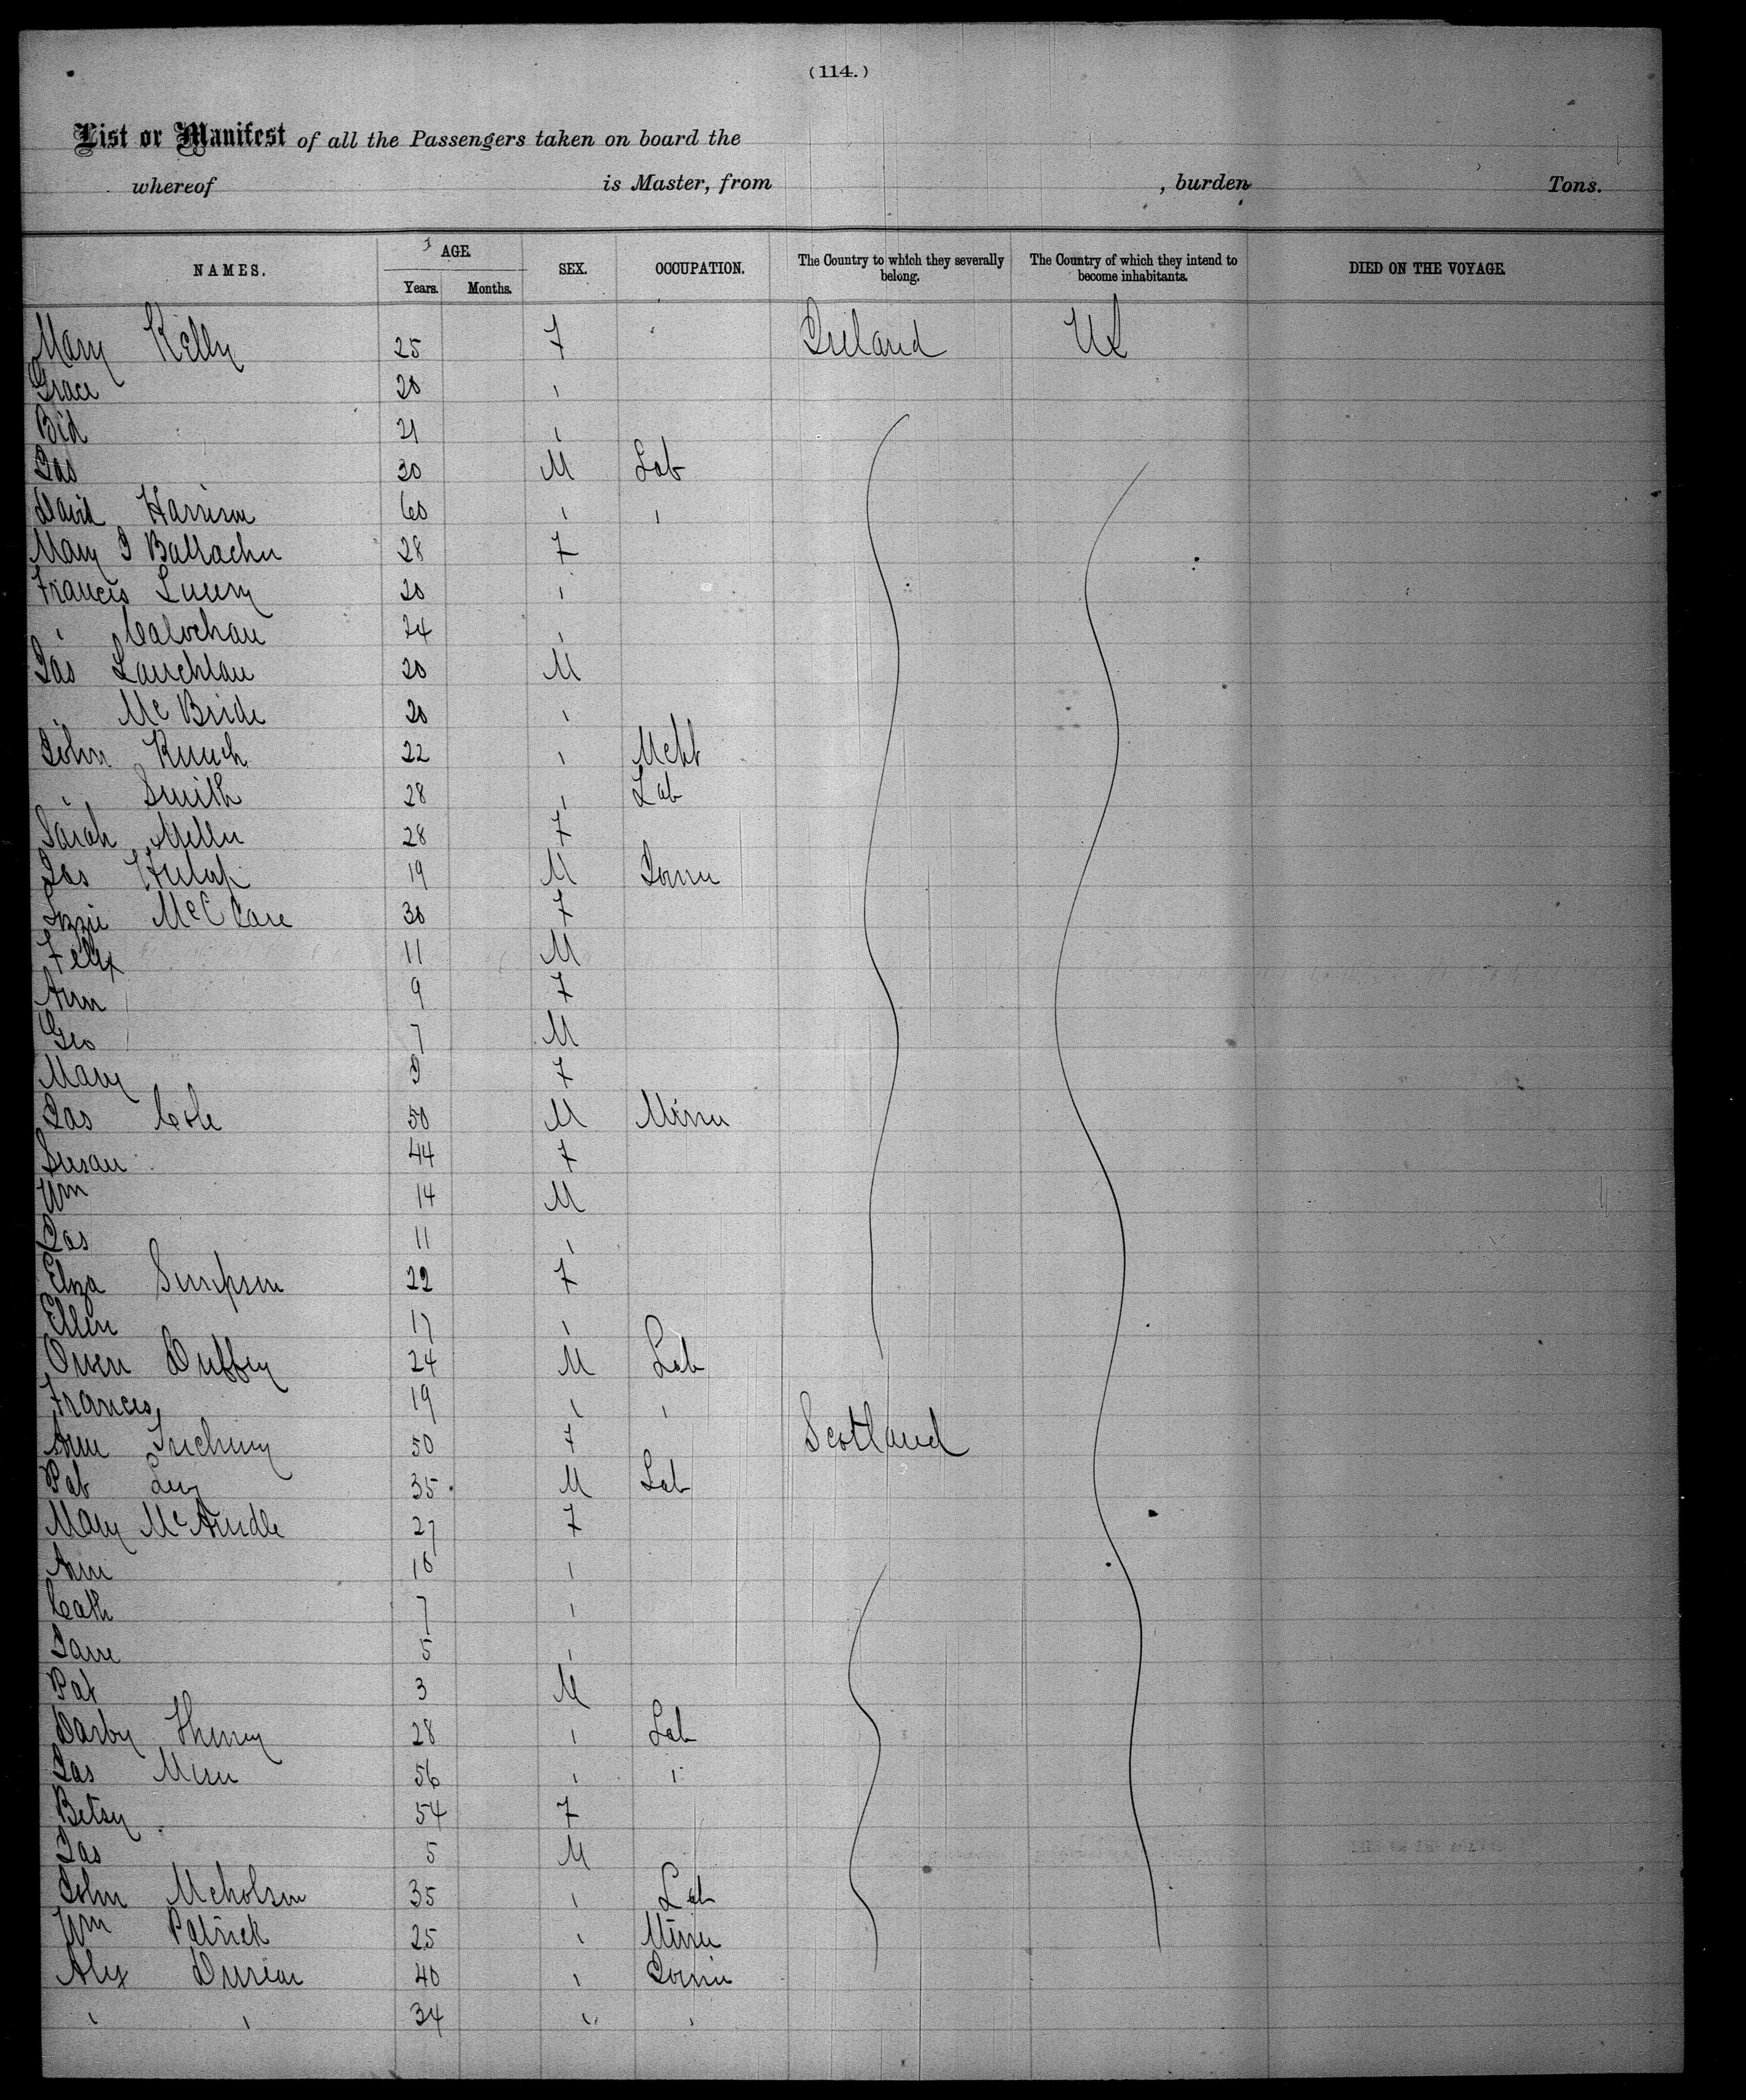 (114.)
List or Manifest of all the Passengers taken on board the
whereof is Master, from , burden Tons.
NAMES. AGE. Years. Months. SEX. OCCUPATION. The Country to which they severally belong. The Country of which they intend to become inhabitants. DIED ON THE VOYAGE.
Mary Kelly 25 F Ireland US
Grace 20 "
Bid 21 "
Jas 20 M Lab
David Harrison 60 " "
Mary J 28 F
Francis 20 "
" 24 "
Jas Lauchlan 20 M
" McBride 20 "
John 22 "
" Smith 28 " Lab
Sarah Miller 28 F
Jas 19 M Joiner
Lizzie 30 F
Felix 11 M
Ann 9 F
Geo 7 M
Mary F
Jas Cole 50 M Miner
Susan 44 F
Wm 14 M
Jas 11 "
Eliza Simpson 22 F
Ellen 17 "
Owen Duffey 24 M Lab
Francis 19 " "
Ann 50 F Scotland
Pat 35 M Lab
Mary McArdle 27 F
Ann "
Cath 7 "
Jane 5 "
Pat 3 M
Darby 28 " Lab
Jas 56 " "
Betsy 54 F
Jas 5 M
John Nicholson 35 " Lab
Wm Patrick 25 " Miner
Alex Duncan 40 " Joiner
" " 34 " "